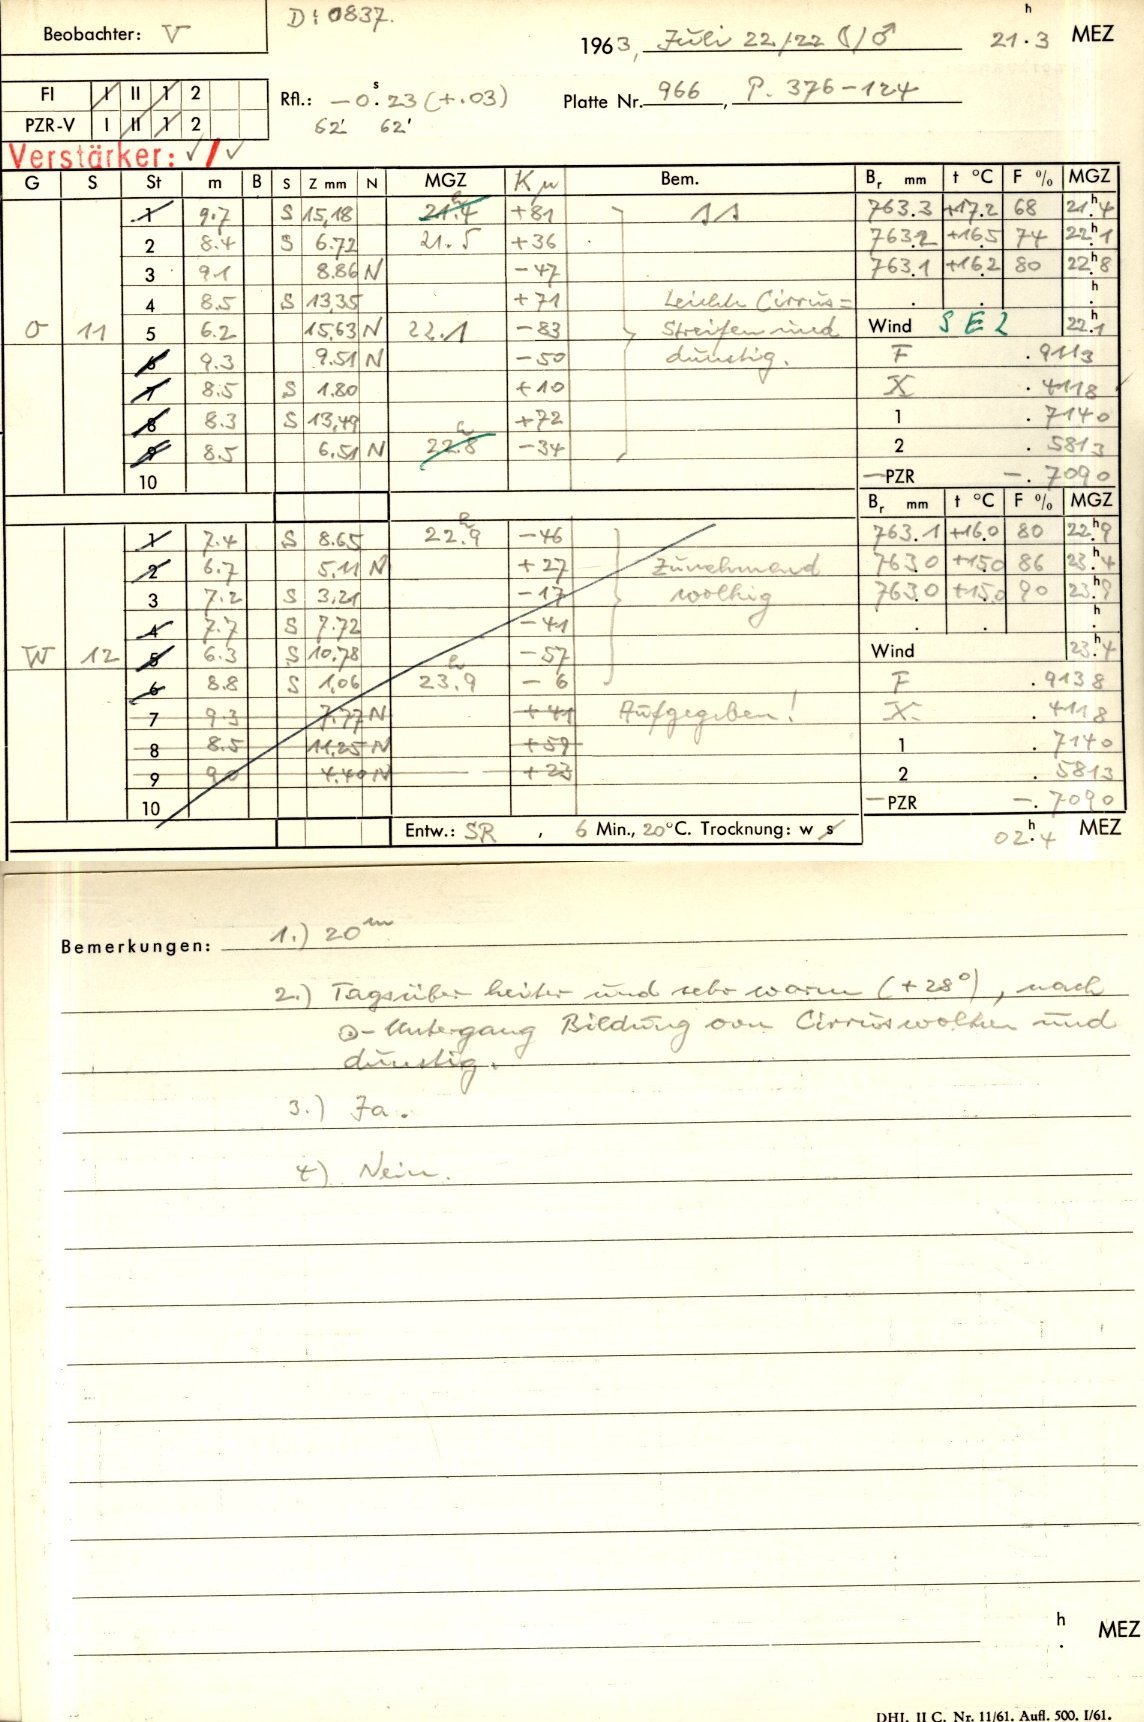 D: 0837.
h
Beobachter: V
1963, Juli 22/22 ☾/♂ 21.3 MEZ
FI I II 1 2
s
Rfl.: -0.23 (+.03)
Platte Nr. 966, P. 376-124
PZR-V I II 1 2
62' 62'
Verstärker: ✓/✓
G S St m B S Z mm N MGZ Kμ Bem. Br mm t °C F % MGZ
1 9.7 S 15,18 21.4 +81 11 763.3 +17.2 68 21h.4
2 8.4 S 6.72 21.5 +36 763.2 +16.5 74 22h.1
3 9.1 8.86 N -47 763.1 +16.2 80 22h.8
4 8.5 S 13,35 +71 Leichte Cirrus= . . h.
O 11 5 6.2 15,63 N 22.1 -83 Streifen und Wind SE2 22h.1
6 9.3 9.51 N -50 dunstig. F .9113
7 8.5 S 1.80 +10 X .4118
8 8.3 S 13,49 +72 1 .7140
9 8.5 6.51 N 22.8 -34 2 .5813
10 -PZR -.7090
Br mm t °C F % MGZ
1 7.4 S 8.65 22h.9 -46 763.1 +16.0 80 22h.9
2 6.7 5,11 N +27 Zunehmend 763.0 +15.0 86 23h.4
3 7.2 S 3,21 -17 wolkig 763.0 +15.0 90 23h.9
4 7.7 S 7.72 -41 . . h.
W 12 5 6.3 S 10,78 -57 Wind 23h.4
6 8.8 S 1,06 23h.9 -6 F .9138
7 9.3 7.77 N +41 Aufgegeben! X .4118
8 8.5 11,25 N +59 1 .7140
9 9.0 4.40 N +23 2 .5813
10 -PZR -.7090
Entw.: SR, 6 Min., 20°C. Trocknung: w s 02h.4 MEZ
Bemerkungen: 1.) 20m
2.) Tagsüber heiter und sehr warm (+28°), nach
⊙-Untergang Bildung von Cirruswolken und
dunstig.
3.) Ja.
4) Nein.
h
. MEZ
DHI. II C. Nr. 11/61. Aufl. 500. I/61.